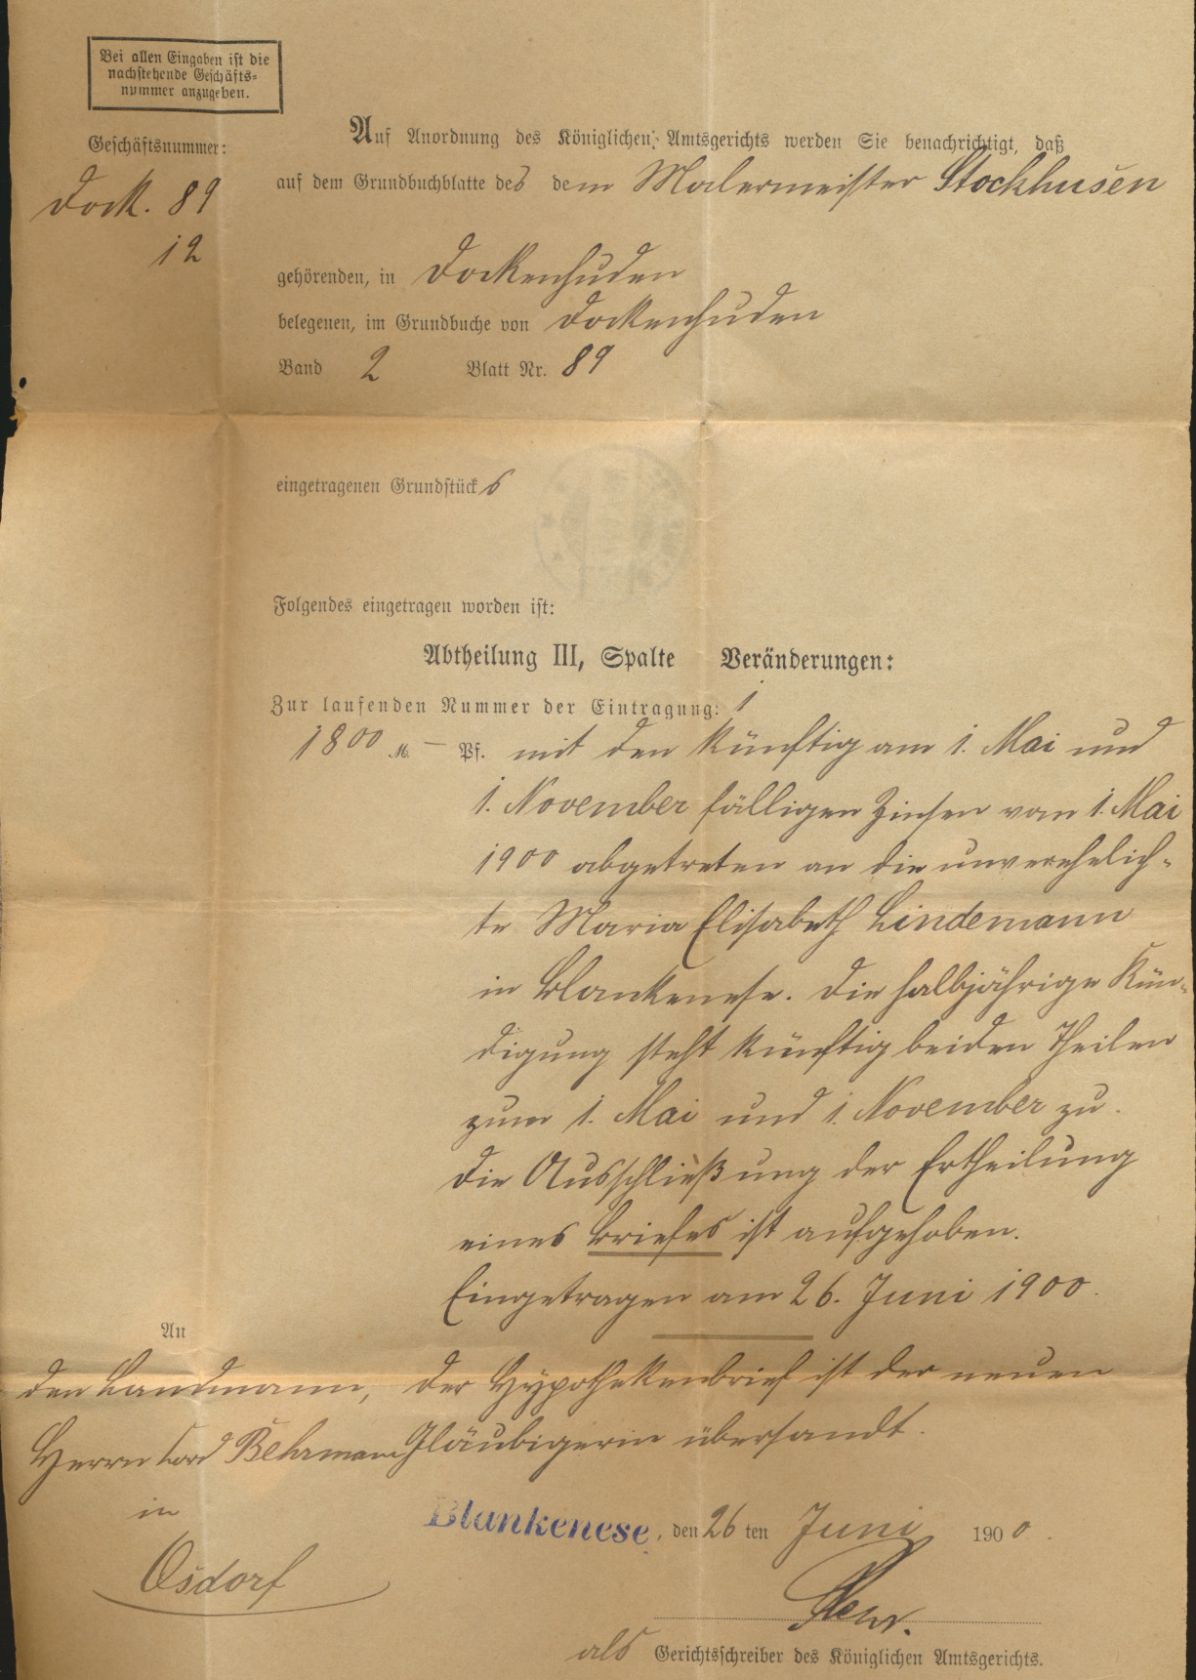 Bei allen Eingaben ist die
nachstehende Geschäfts-
nummer anzugeben.
Geschäftsnummer:
Dock. 89
12
Auf Anordnung des Königlichen Amtsgerichts werden Sie benachrichtigt, daß
auf dem Grundbuchblatte des dem Malermeister Stockhusen
gehörenden, in Dockenhuden
belegenen, im Grundbuche von Dockenhuden
Band 2 Blatt Nr. 89
eingetragenen Grundstücks
Folgendes eingetragen worden ist:
Abtheilung III, Spalte Veränderungen:
Zur laufenden Nummer der Eintragung: 1
1800 M. — Pf. mit den künftig am 1. Mai und
1. November fälligen Zinsen vom 1. Mai
1900 abgetreten an die unverehelich-
te Maria Elisabeth Lindemann
in Blankenese. Die halbjährige Kün-
digung steht künftig beiden Theilen
zum 1. Mai und 1. November zu.
Die Ausschließung der Ertheilung
eines Briefes ist aufgehoben.
Eingetragen am 26. Juni 1900.
Der Hypothekenbrief ist der neuen
Gläubigerin übersandt.
An
den Landmann,
Herrn Cord Behrmann
in
Osdorf
Blankenese, den 26 ten Juni 1900
als Gerichtsschreiber des Königlichen Amtsgerichts.